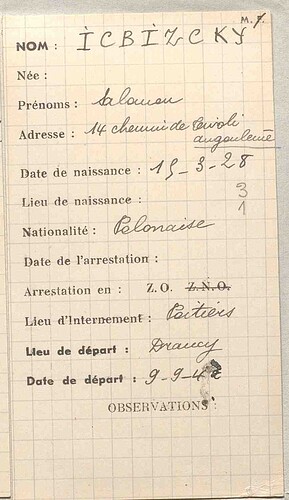 M. 7.
NOM : ICBIZCKY
Née :
Prénoms : Salomon
Adresse : 14 chemin de Tivoli
angouleme
Date de naissance : 15-3-28
3
Lieu de naissance :
1
Nationalité : Polonaise
Date de l'arrestation :
Arrestation en : Z.O. Z.N.O.
Lieu d'Internement : Poitiers
Lieu de départ : Drancy
Date de départ : 9-9-42
OBSERVATIONS :